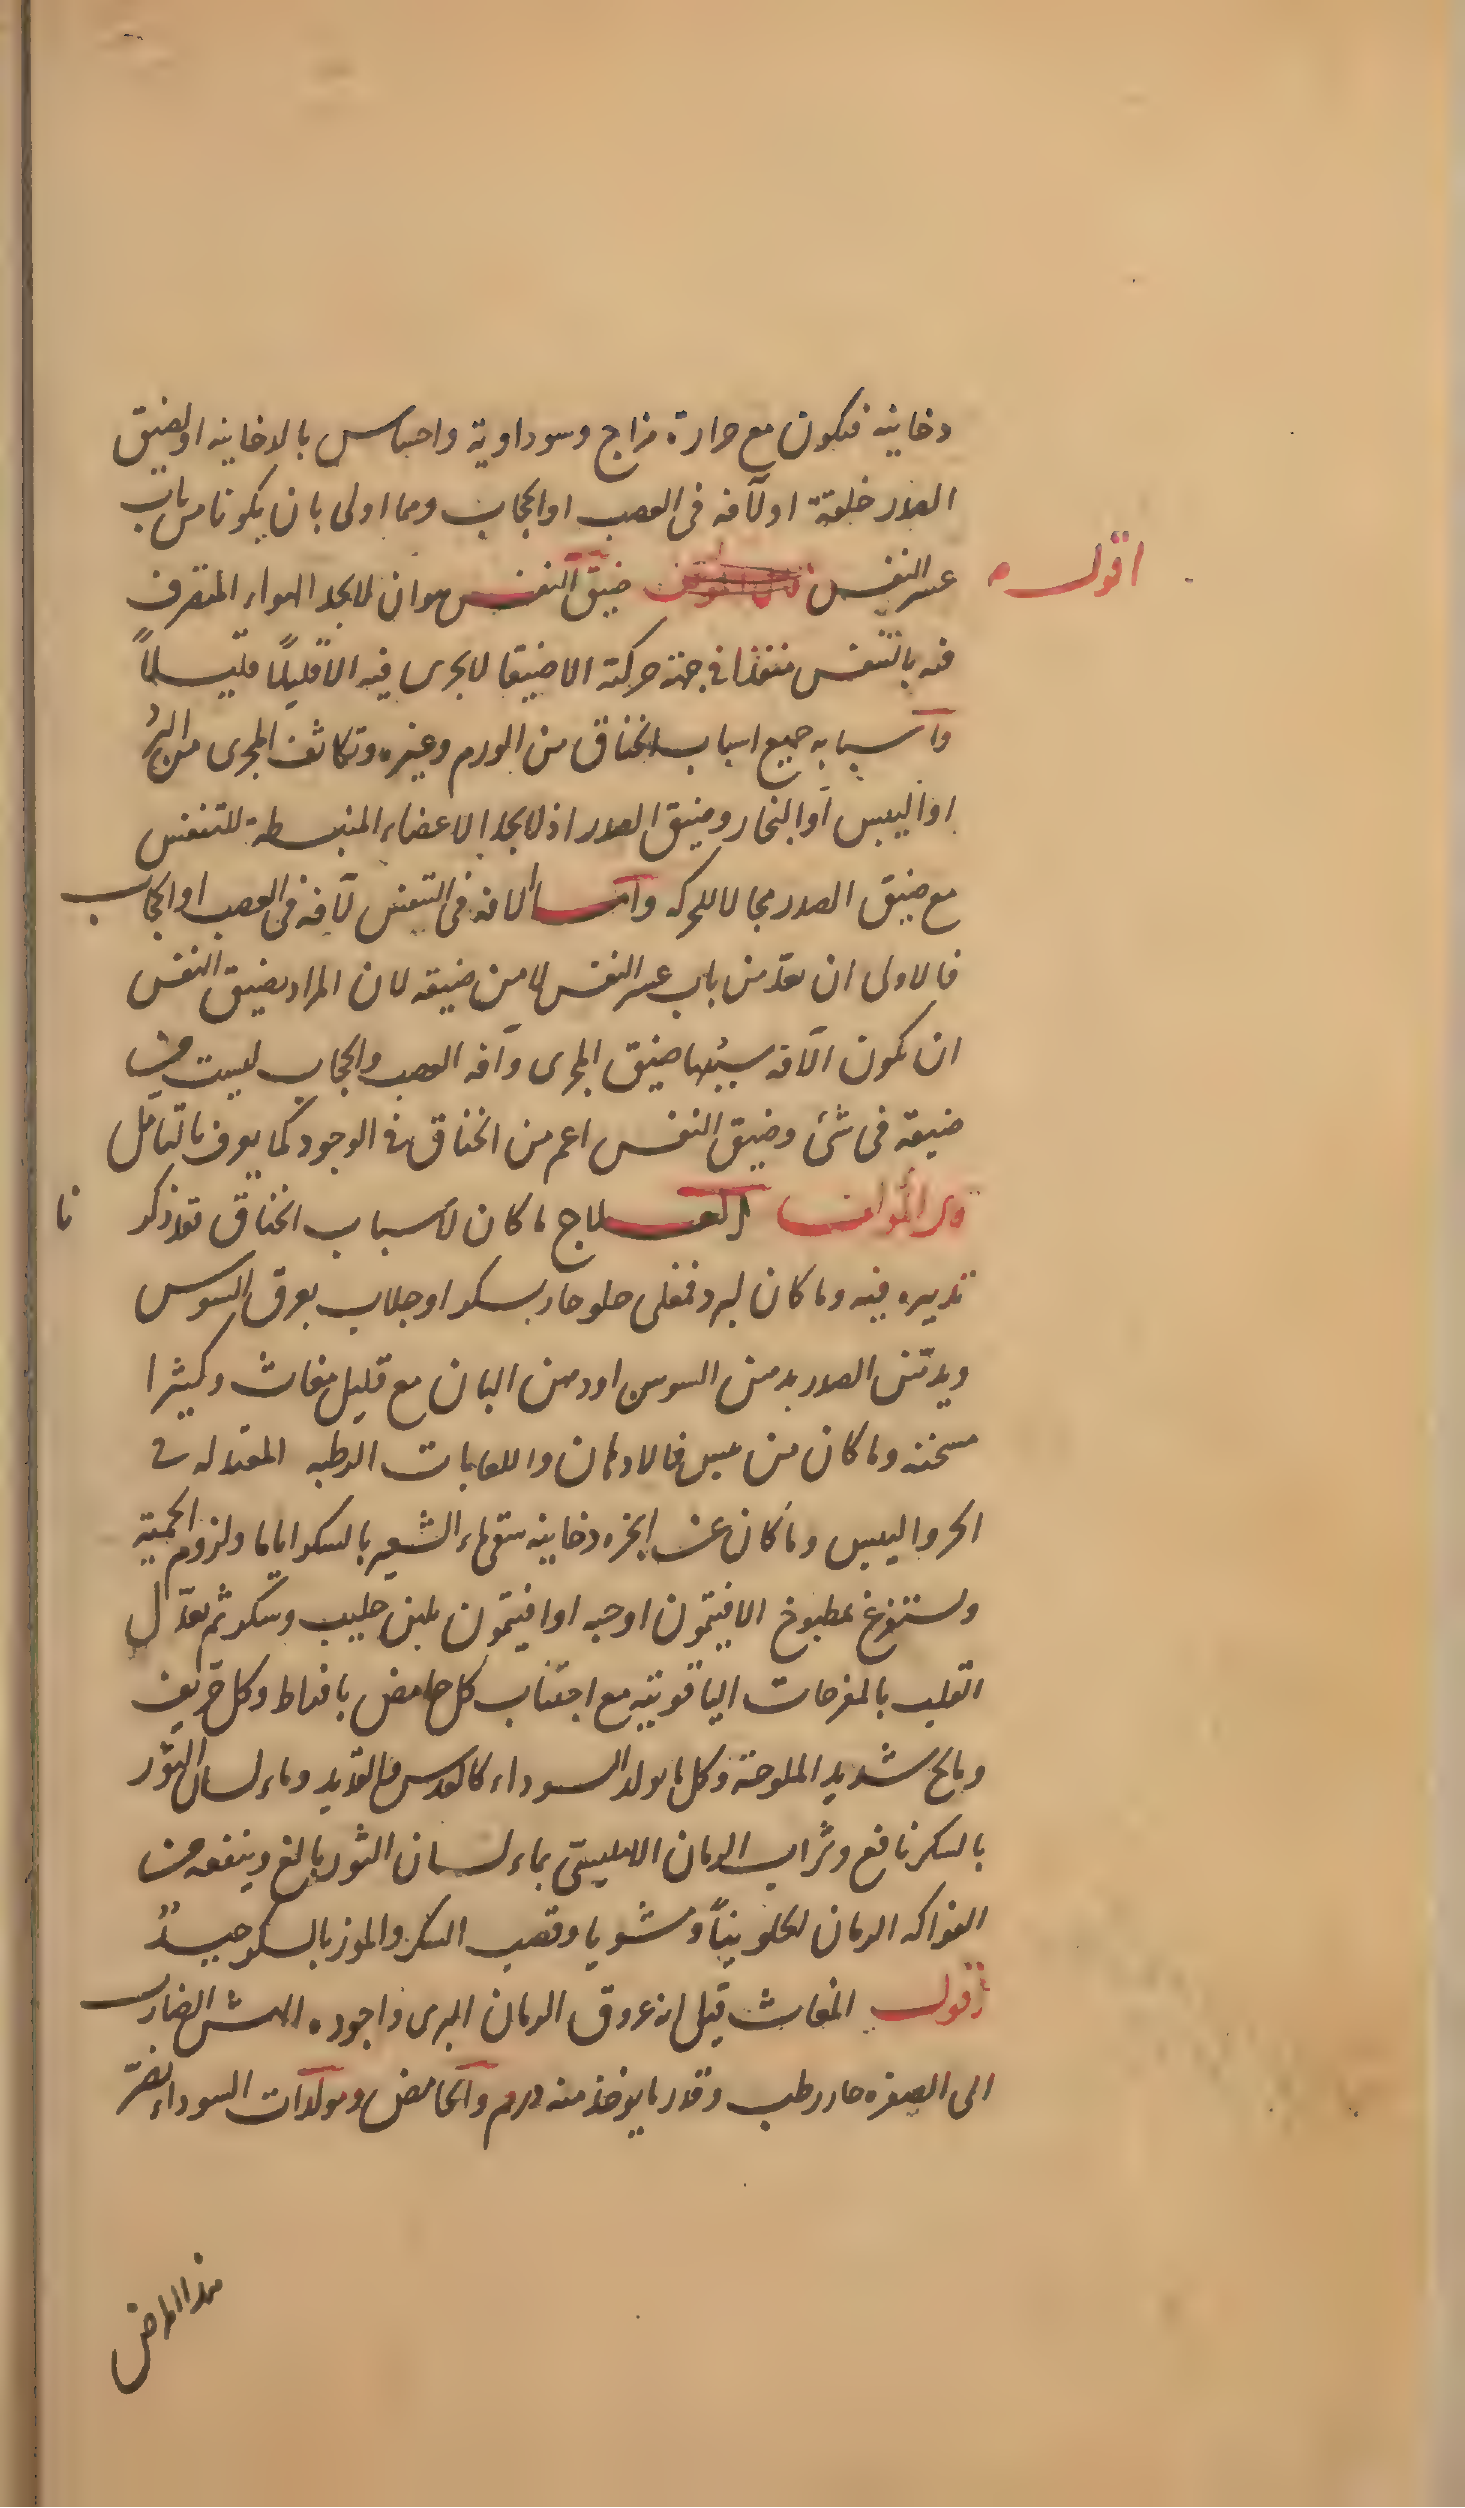 دخانيه فتكون مع حرارة مزاج وسوداوية واحساس بالدخانيه او لضيق
الصدر خلقة او لآفه فى العصب او الحجاب وهما اولى بان يكونا من باب
اقول
عسر النفس ضيق النفس هو ان لا يجد الهواء المتصرف
فيه بالتنفس منفذا فى جهة حركته الا ضيقا لا يجرى فيه الا قليلًا قليلًا
وأسبابه جميع اسباب الخناق من الورم وغيره وتكاثف المجرى من البرد
او اليبس او البخار وضيق الصدر اذ لا يجد الاعضاء المنبسطة للتنفس
مع ضيق الصدر مجالا للحركه وأما الآفه فى التنفس لآفه فى العصب او الحجاب
فالاولى ان يعدّ من باب عسر النفس لا من ضيقه لان المراد بضيق النفس
ان تكون الآفه سببها ضيق المجرى وآفه العصب والحجاب ليست من
ضيقه فى شئ وضيق النفس اعم من الخناق فى الوجود كما يعرف بالتامل
قال المؤلف العلاج ما كان لأسباب الخناق فقد ذكرنا
تدبيره فيه وما كان لبرد فمغلى حلو حار بسكر او جلاب بعرق السوس
ويدهن الصدر بدهن السوسن او دهن البان مع قليل مغاث وكثيرا
مسخنه وما كان من يبس فالادهان واللعابات الرطبه المعتدله فى
الحر واليبس وما كان عن ابخره دخانيه سقى ماء الشعير بالسكر اياما ولزوم الحمية
وستفرغ بمطبوخ الافتيمون او حبه او افتيمون بلبن حليب وسكر ثم يعدّل
القلب بالمفرحات الياقوتيه مع اجتناب كل حامض بافراط وكل حريف
ومالح شديد الملوحة وكل ما يولد السوداء كالعدس والقديد وماء لسان الثور
بالسكر نافع وشراب الرمان الامليسىّ بماء لسان الثور بالغ وينفعه من
الفواكه الرمان الحلو نيأ ومشويا وقصب السكر والموز بالسكر جيدٌ
اقول المغاث قيل انه عروق الرمان البرى واجوده الهش الضارب
الى الصفره حار رطب وقدر ما يوخذ منه درهم والحامض ومولدات السوداء تضرّ
هذا المرض